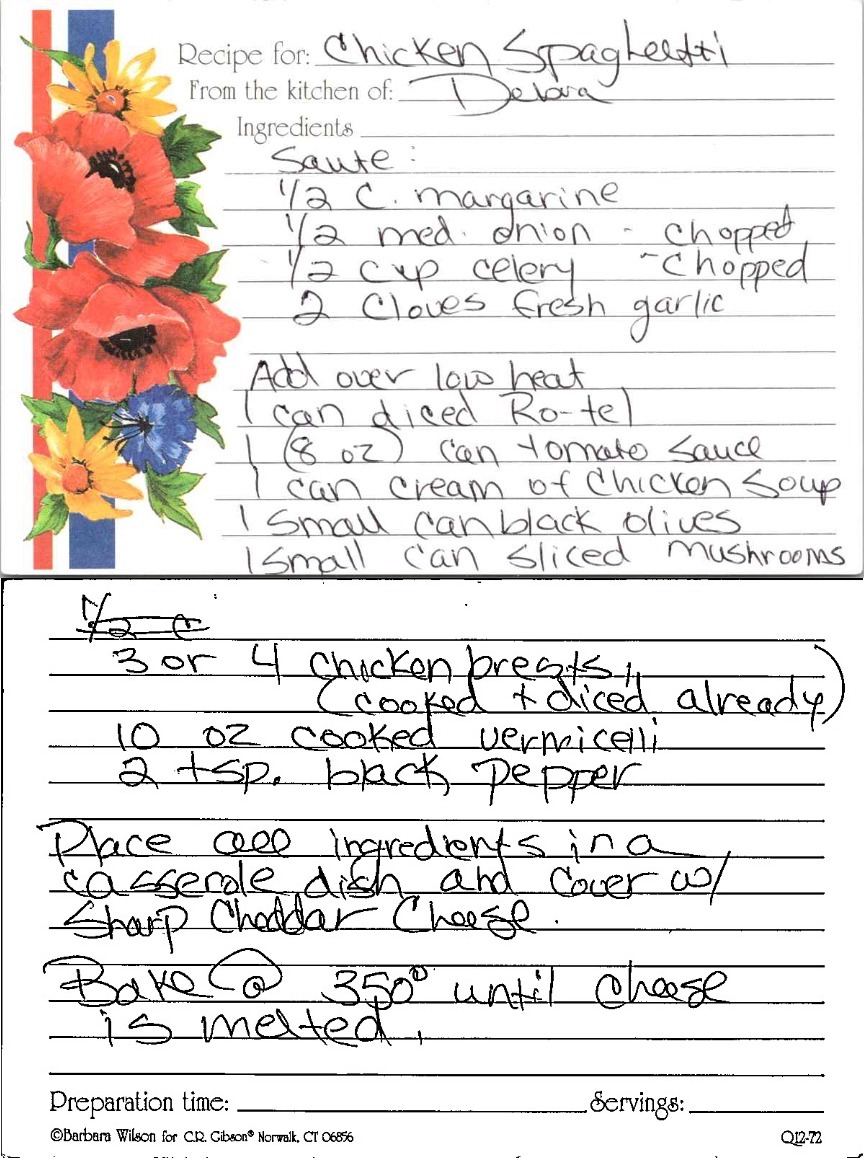 Recipe for: Chicken Spaghetti
From the kitchen of: Debra
Ingredients
Saute:
1/2 C. margarine
1/2 med. onion - chopped
1/2 cup celery - chopped
2 Cloves fresh garlic
Add over low heat
1 can diced Ro-tel
1 (8 oz) can tomato sauce
1 can cream of chicken soup
1 small can black olives
1 small can sliced mushrooms
1/2 c
3 or 4 chicken breasts,
(cooked + diced already)
10 oz cooked vermicelli
2 tsp. black pepper
Place all ingredients in a
casserole dish and cover w/
Sharp Cheddar Cheese.
Bake @ 350° until cheese
is melted.
Preparation time: Servings:
©Barbara Wilson for C.R. Gibson® Norwalk, CT 06856 Q12-72